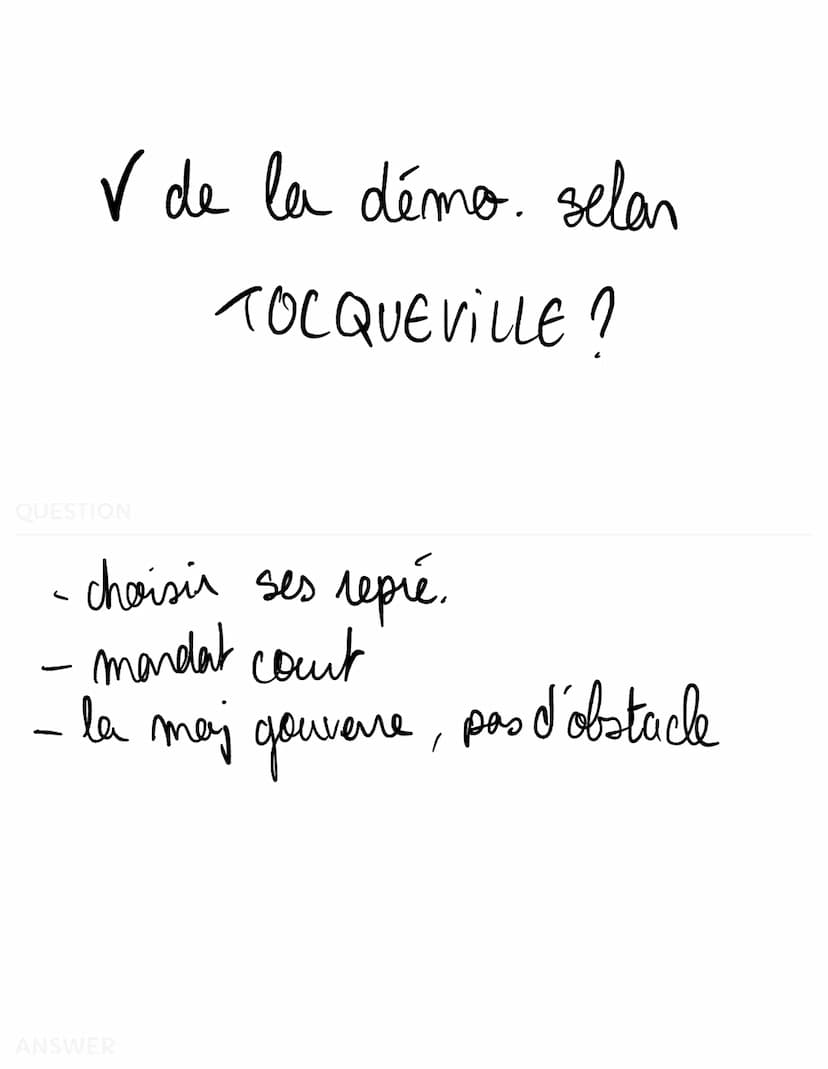 √ de la démo. selon
TOCQUEViLLE ?
QUESTION
- choisir ses repré.
- mandat court
- la maj gouverne, pas d'obstacle
ANSWER